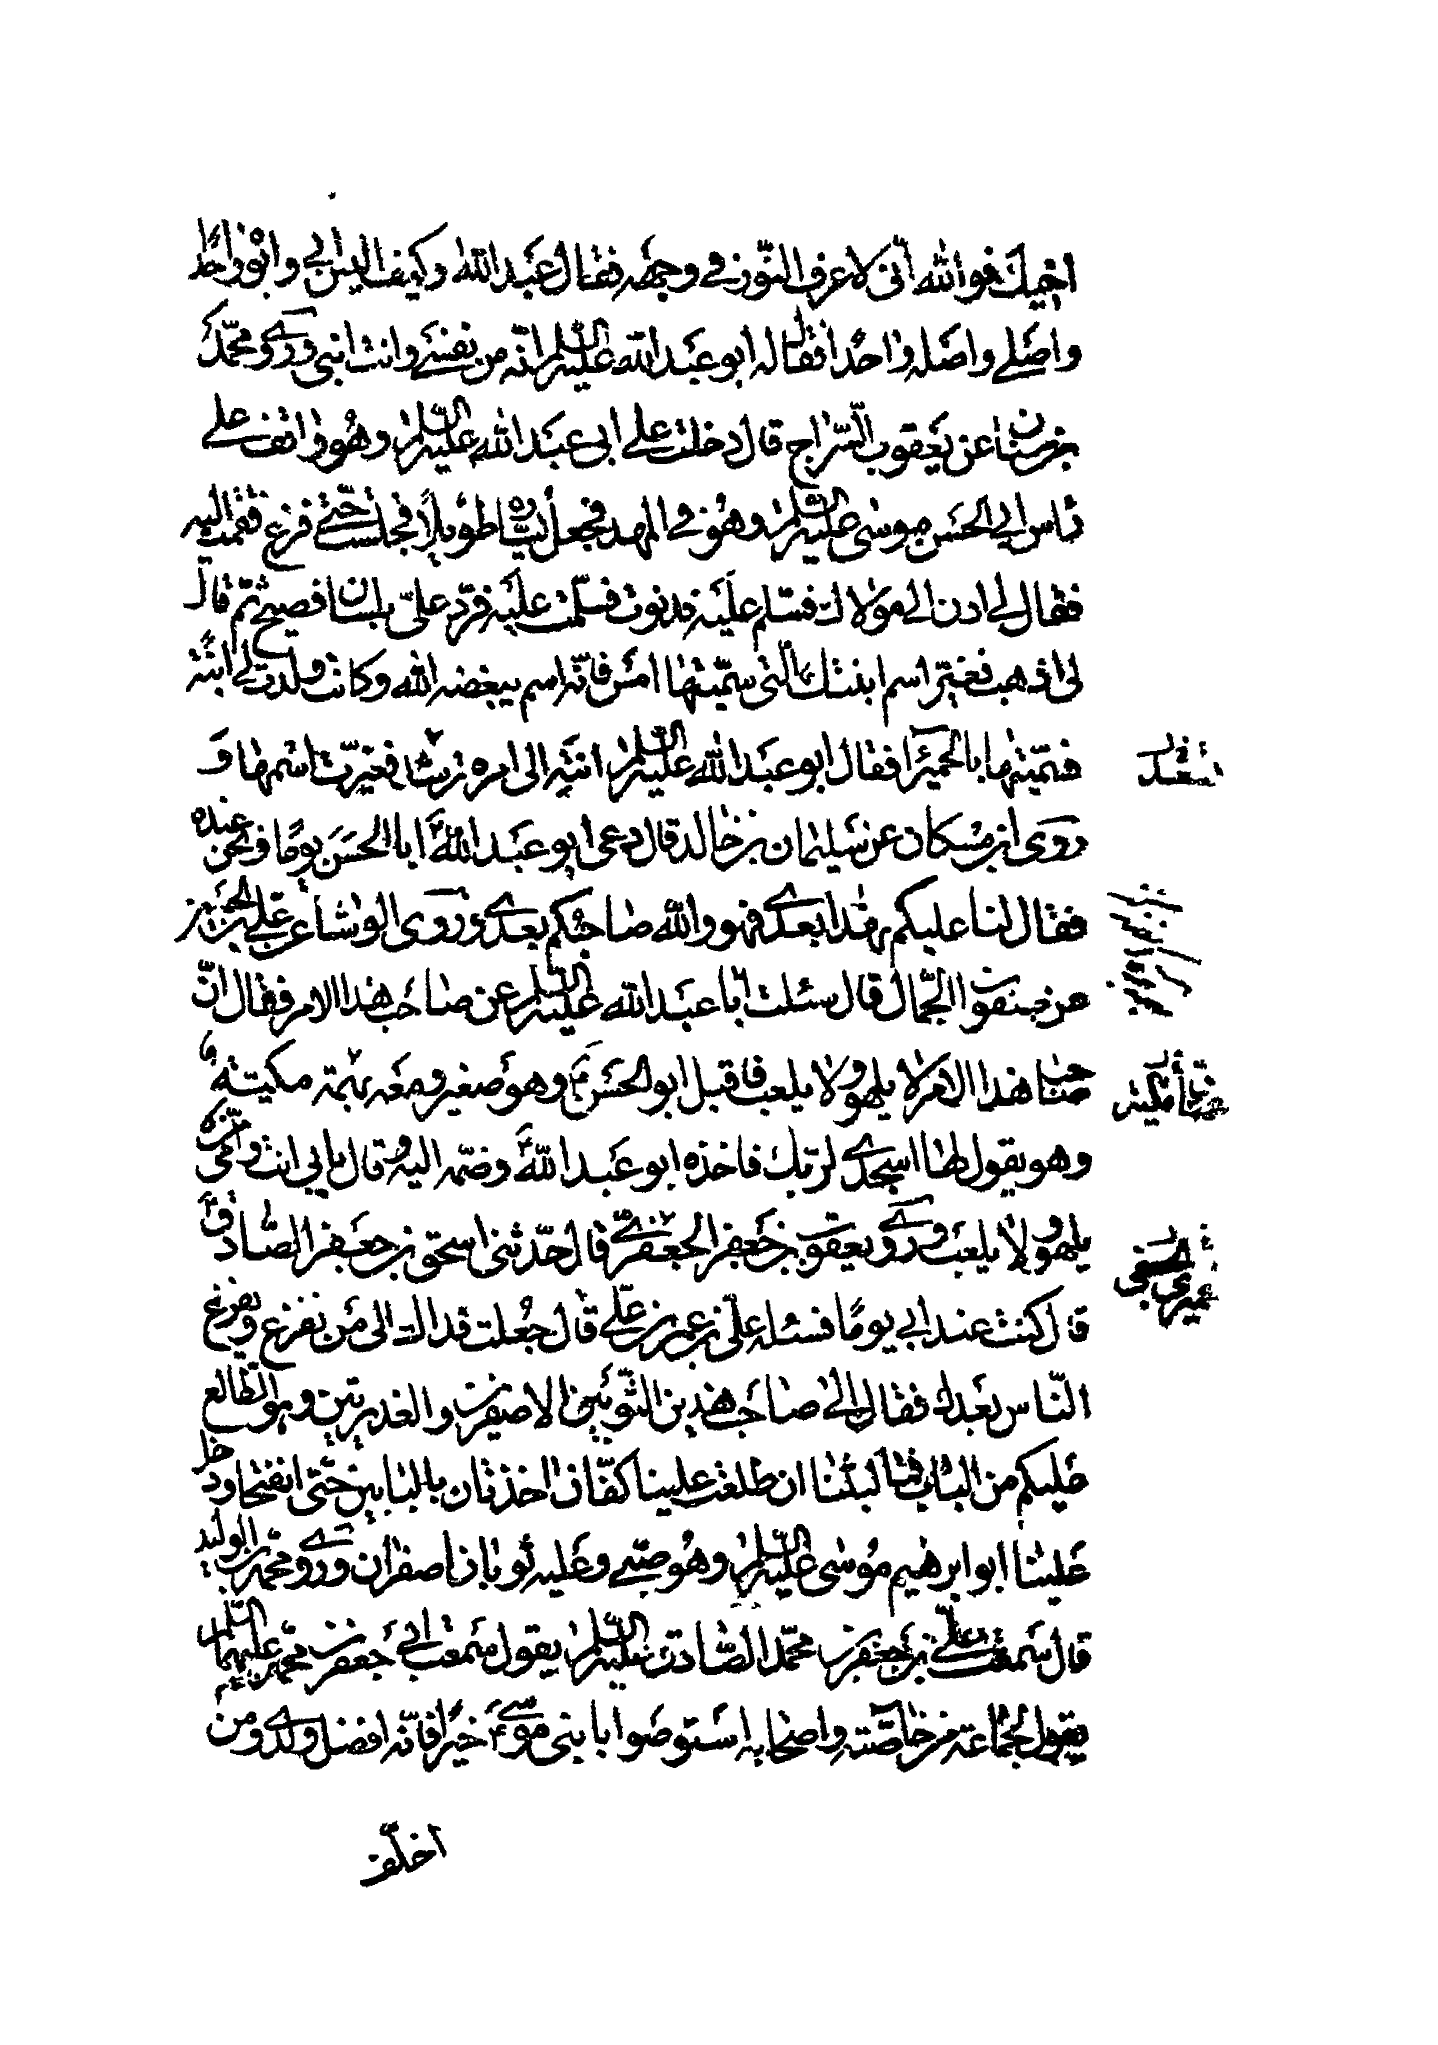 اخيك فوالله انى لاعرف النّور في وجهه فقال عبد الله وكيف اليس ابي وابوه واحدًا
واصلي واصله واحدًا فقال له ابو عبد الله عليه السلم انّه من نفسي وانت ابني وروى محمّد
بن سنان عن يعقوب السّراج قال دخلت على ابى عبد الله عليه السلم وهو واقف على
راس ابي الحسن موسى عليه السلم وهو في المهد فجعل يسارّه طويلاً فجلست حتّى فرغ فقمت اليه
فقال لي ادن الى مولاك فسلّم عليه فدنوت فسلّمت عليه فردّ علىّ بلسان فصيح ثمّ قال
لى اذهب فغيّر اسم ابنتك التى سمّيتها امس فانّه اسم يبغضه الله وكانت ولدت لي ابنة
فسمّيتها بالحميرا فقال ابو عبد الله عليه السلم انته الى امره ترشد فغيّرت اسمها و
روى ابن مسكان عن سليمان بن خالد قال دعى ابو عبد الله ابا الحسن يومًا ونحن عنده
فقال لنا عليكم بهذا بعدي فهو والله صاحبكم بعدي وروى الوشا عن علي بن الحسين
عن صفوان الجمّال قال سئلت ابا عبد الله عليه السلم عن صاحب هذا الامر فقال انّ
صاحب هذا الامر لا يلهو ولا يلعب فاقبل ابو الحسن وهو صغير ومعه بهمة مكيّة
وهو يقول لها اسجدي لربّك فاخذه ابو عبد الله وضمّه اليه وقال بابي انت وامّى من لا
يلهو ولا يلعب وروى يعقوب بن جعفر الجعفري قال حدّثنى اسحق بن جعفر الصّادق
قال كنت عند ابي يومًا فسئله علىّ بن عمر بن علي قال جعلت فداك الى من نفزع ويفزع
النّاس بعدك فقال الى صاحب هذين الثّوبين الاصفرين والغديرتين وهو الطّالع
عليكم من الباب فما لبثنا ان طلعت علينا كفّان اخذتان بالبابين حتّى انفتحا ودخل
علينا ابو ابرهيم موسى عليه السلم وهو صبي وعليه ثوبان اصفران وروى محمّد بن الوليد
قال سمعت علي بن جعفر بن محمّد الصّادق عليه السلم يقول سمعت ابي جعفر بن محمّد عليهما السلم
يقول لجماعة من خاصّته واصحابه استوصوا بابنى موسى ع خيرًا فانّه افضل ولدي ومن
اخلّف